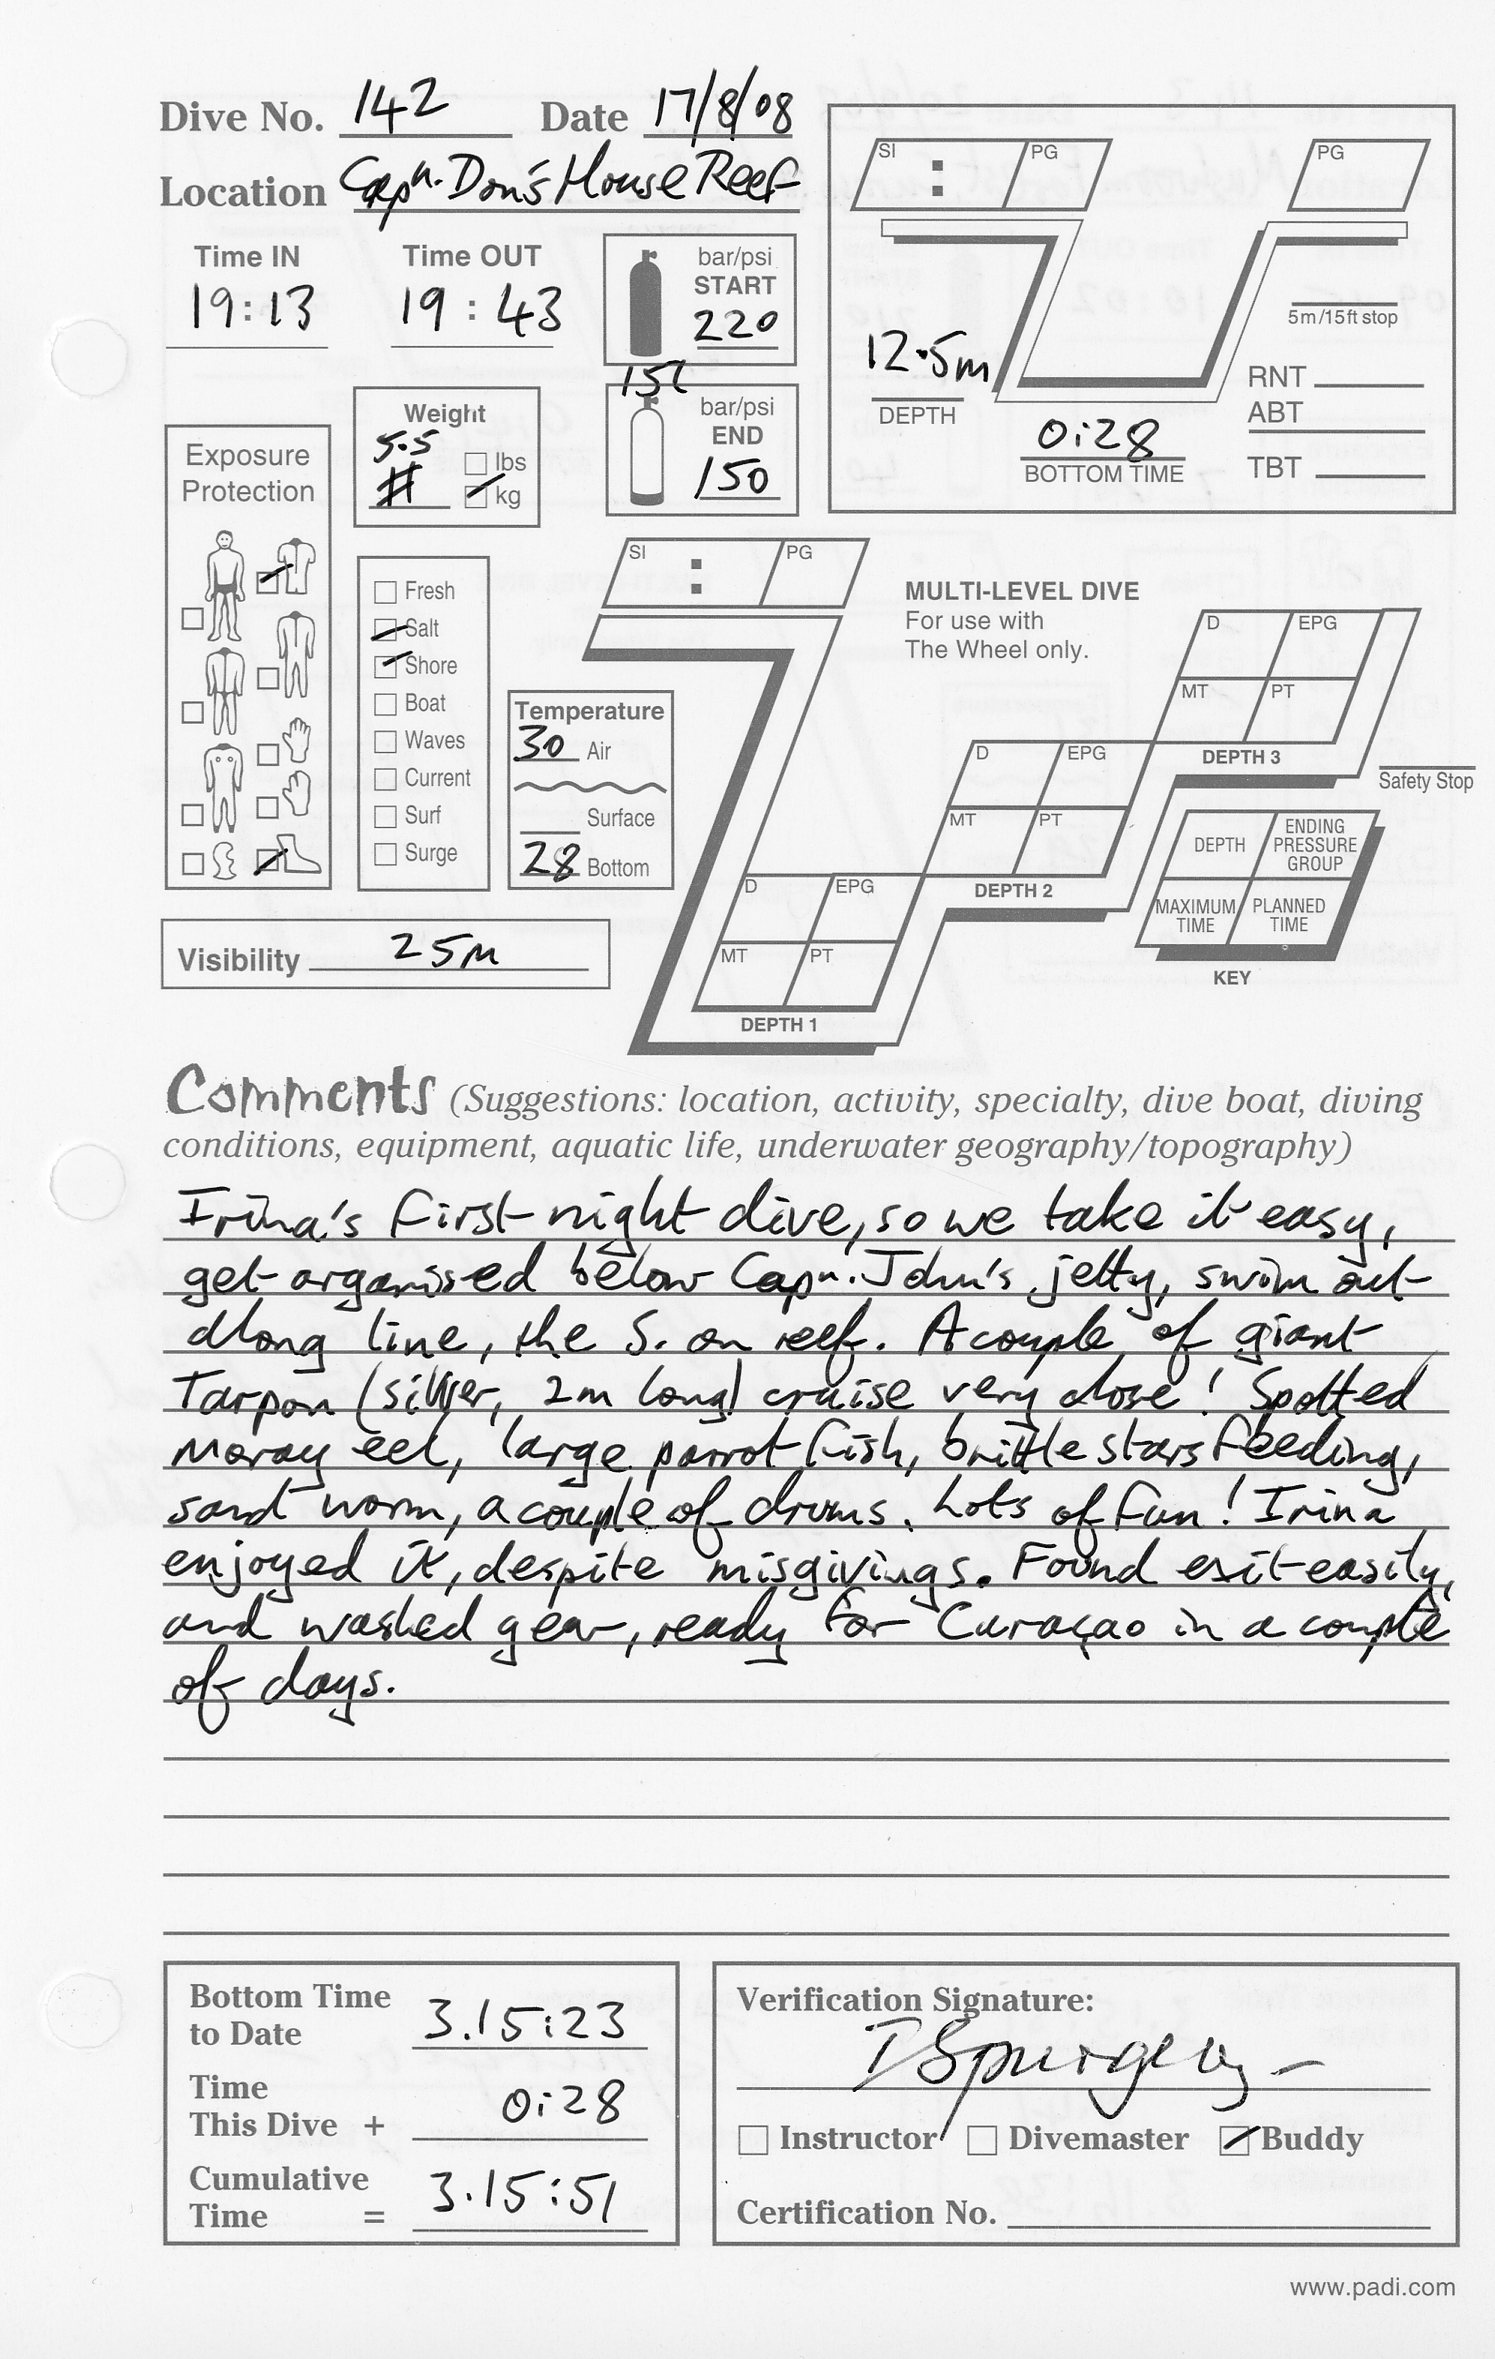 Dive No. 142 Date 17/8/08
Location Capn. Don's House Reef
Time IN 19:13
Time OUT 19:43
bar/psi START 220
15l
bar/psi END 150
Weight 5.5
lbs
kg
Exposure Protection
Fresh
Salt
Shore
Boat
Waves
Current
Surf
Surge
Temperature
30 Air
Surface
28 Bottom
Visibility 25m
SI : PG
PG
12.5m
DEPTH
0:28
BOTTOM TIME
5m/15ft stop
RNT
ABT
TBT
SI : PG
MULTI-LEVEL DIVE
For use with
The Wheel only.
D EPG
MT PT
DEPTH 3
Safety Stop
D EPG
MT PT
DEPTH 2
D EPG
MT PT
DEPTH 1
DEPTH
ENDING PRESSURE GROUP
MAXIMUM TIME
PLANNED TIME
KEY
Comments (Suggestions: location, activity, specialty, dive boat, diving
conditions, equipment, aquatic life, underwater geography/topography)
Irina's first night dive, so we take it easy,
get organised below Capn. John's jetty, swim out
along line, the S. on reef. A couple of giant
Tarpon (silver, 2m long) cruise very close! Spotted
Moray eel, large parrot fish, brittle stars feeding,
sand worm, a couple of drums. Lots of fun! Irina
enjoyed it, despite misgivings. Found exit easily,
and washed gear, ready for Curaçao in a couple
of days.
Bottom Time
to Date 3.15:23
Time
This Dive + 0:28
Cumulative
Time = 3.15:51
Verification Signature:
ISpurgeon
Instructor Divemaster Buddy
Certification No.
www.padi.com